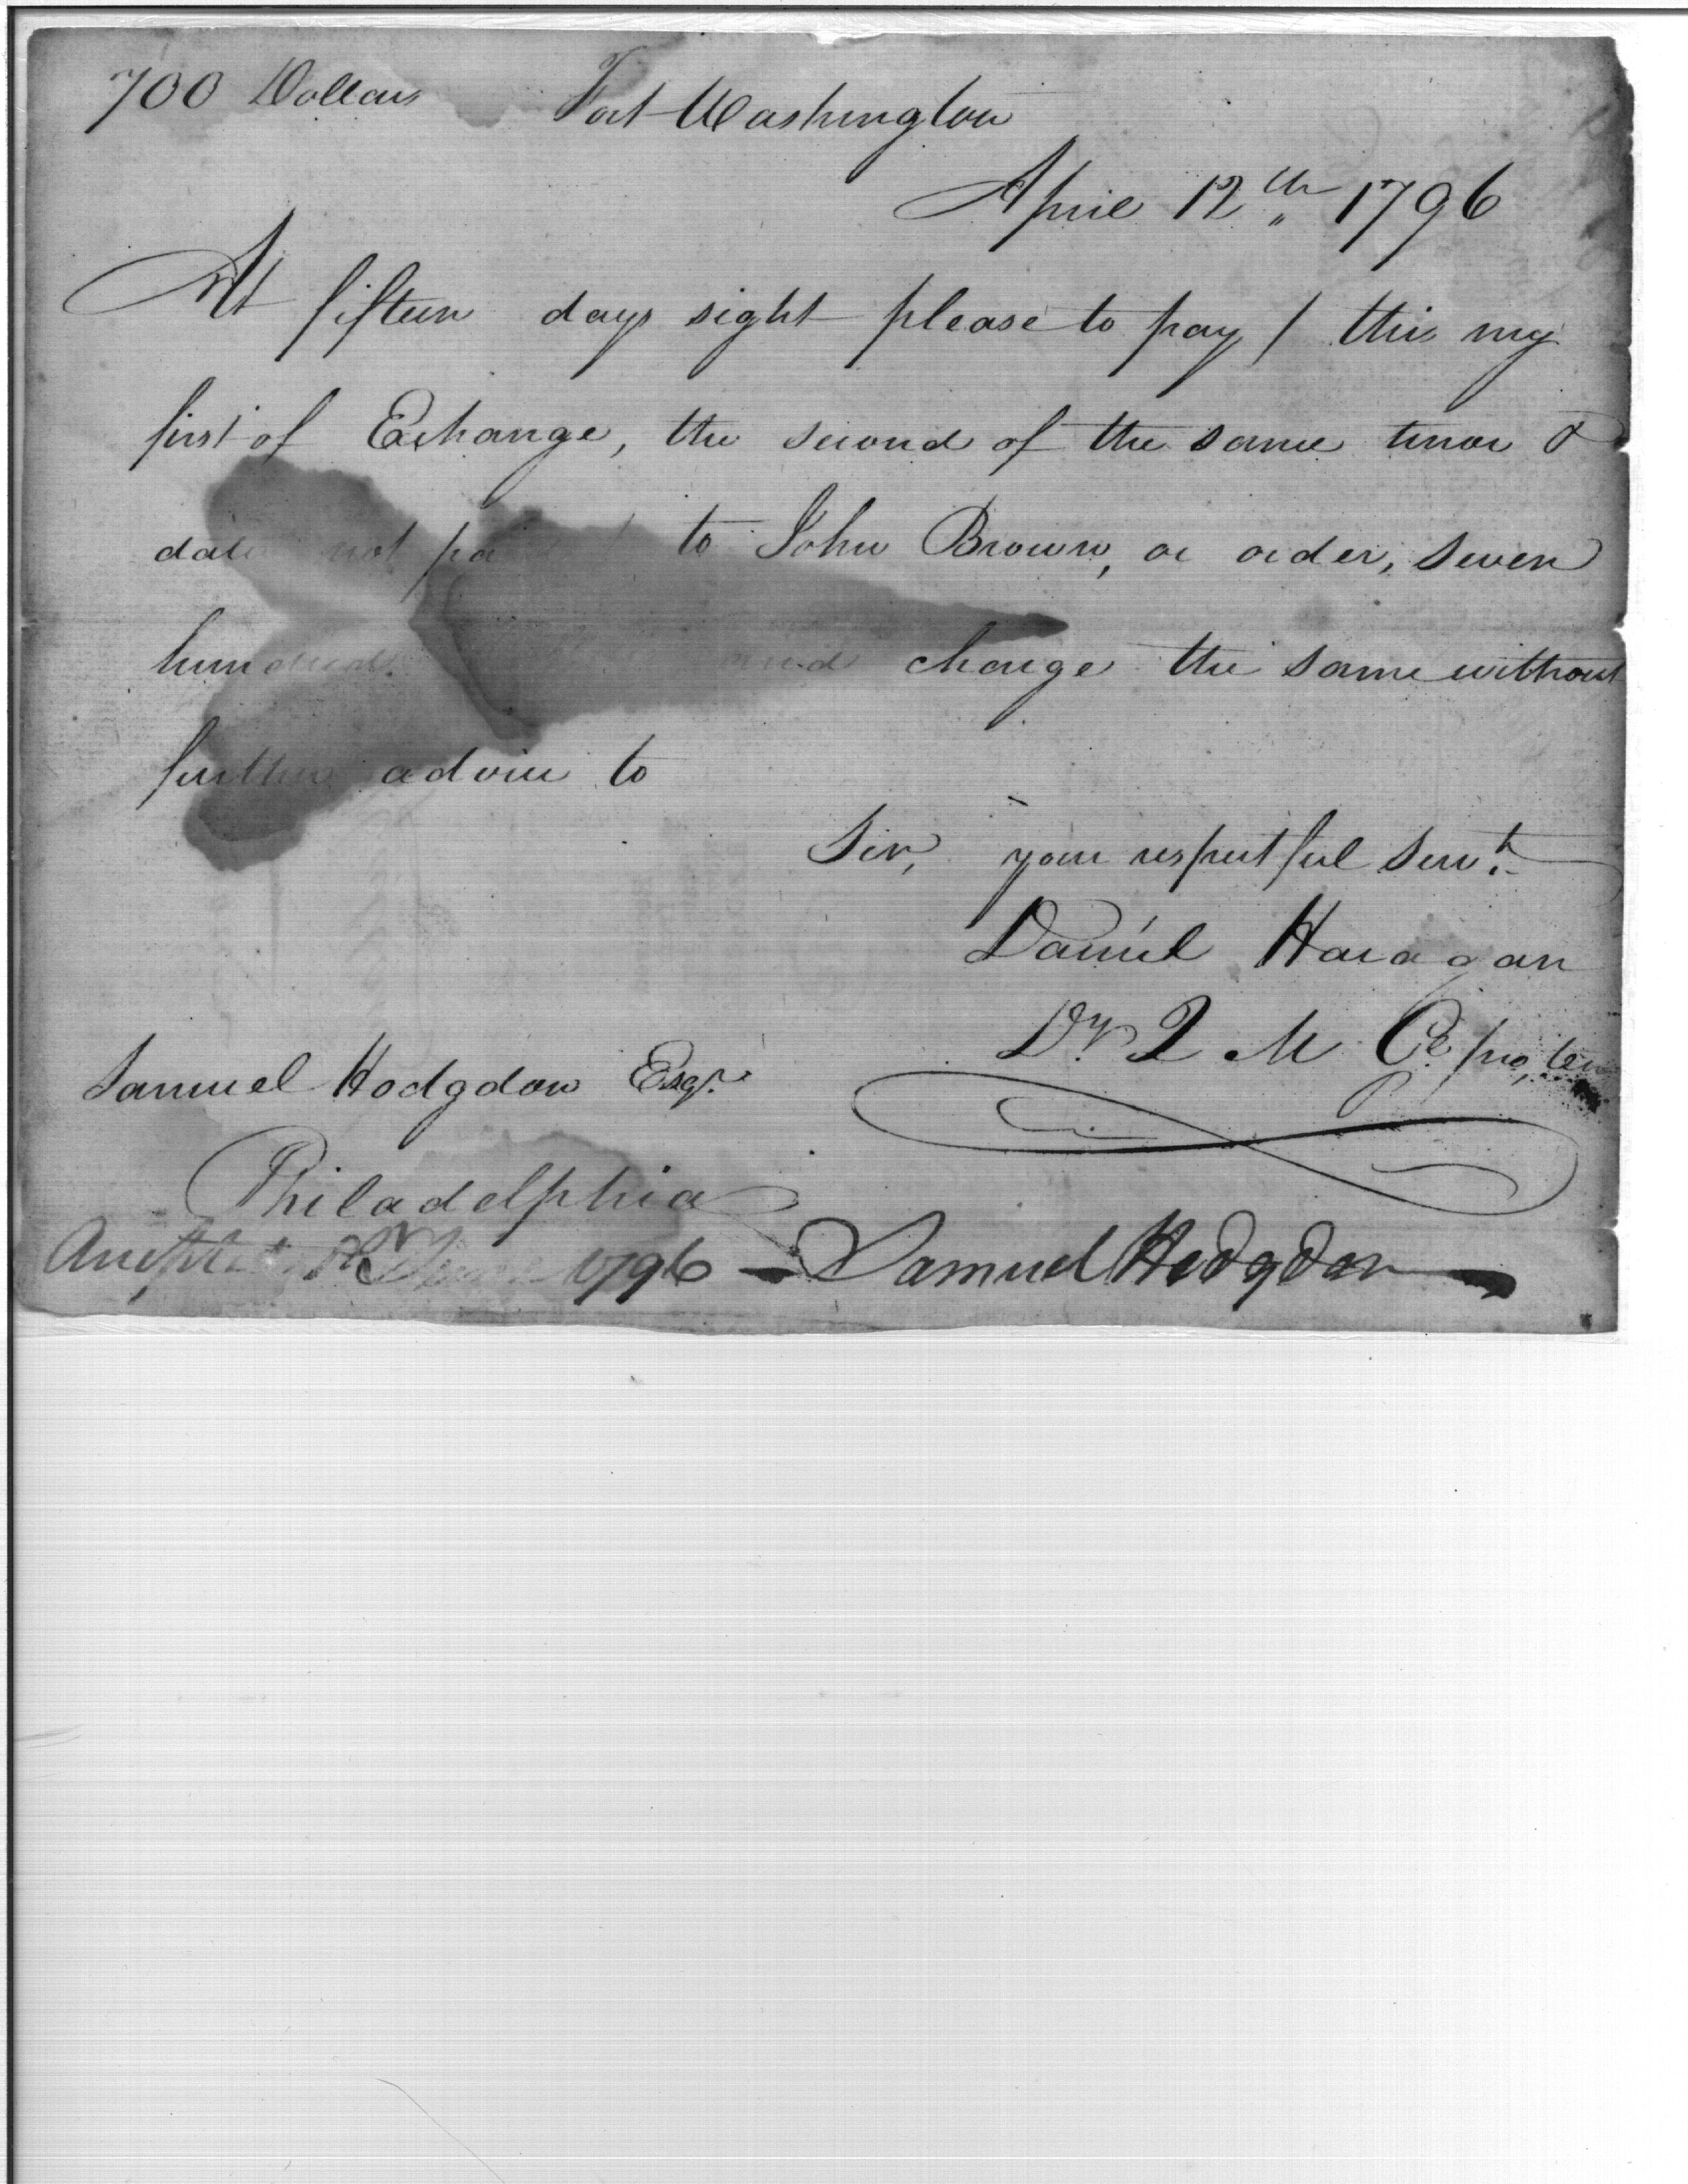 700 Dollars Fort Washington
April 12th 1796
At fifteen days sight please to pay / this my
first of Exchange, the second of the same tenor &
date not paid to John Brown, or order, seven
hundred and charge the same without
further advice to
Sir, your respectful Servt.
Daniel Haragan
Dy. Q M Gl. pro, tem
Samuel Hodgdon Esqr.
Philadelphia
Accepted 1796 — Samuel Hodgdon —